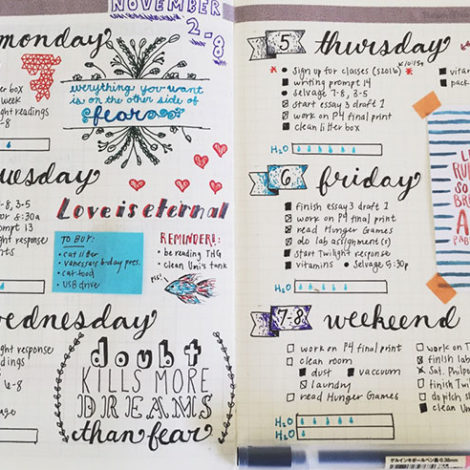 NOVEMBER
2-8
monday
er box
week
ght readings
-8
everything you want
is on the other side of
fear
uesday
3, 3-5
for @ 8:30a
mpt 13
ght response
nts
Love is eternal
TO BUY:
• cat litter
• vanessa's b-day pres.
• cat food
• USB drive
REMINDER!:
• be reading THG
• clean Uni's tank
wednesday
ght response
eadings
6-8
age
doubt
KILLS MORE
DREAMS
than fear
5 thursday
sign up for classes (s2016)
writing prompt 14
selvage 7-8, 3-5
start essay 3 draft 1
work on P4 final print
clean litter box
H₂O
vita
pack
6 friday
finish essay 3 draft 1
work on P4 final print
read Hunger Games
do lab assignment(s)
start Twilight response
vitamins • Selvage 5:30p
H₂O
7-8 weekend
work on P4 final print
clean room
dust vaccuum
laundry
read Hunger Games
H₂O
work on T
finish lab
Sat. Philop
finish Twi
do pitch s
clean Un
0.38mm